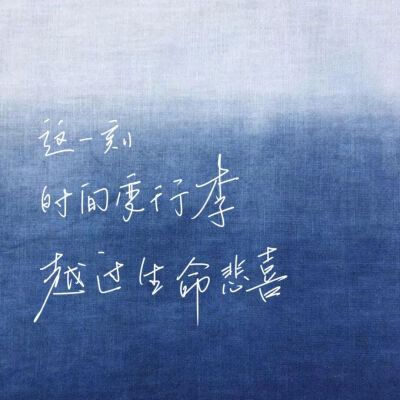 这一刻
时间变行李
越过生命悲喜